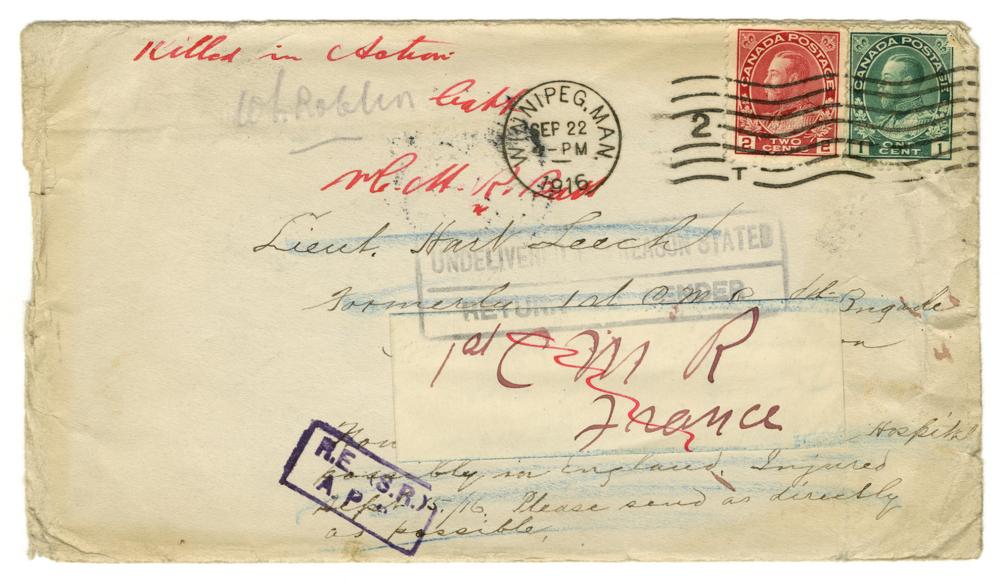 Killed in Action
CANADA POSTAGE
2 TWO CENTS 2
CANADA POSTAGE
1 ONE CENT 1
WINNIPEG, MAN.
SEP 22
-PM
1916
2
T
Lieut. Hart Leech
UNDELIVERED REASON STATED
RETURN SENDER
Formerly 1st C.M.R. Brigade
1st C M R
France
Now Hospital
possibly in England. Injured
Sept 15/16. Please send as directly
as possible.
R.E. (S.R.)
A.P.